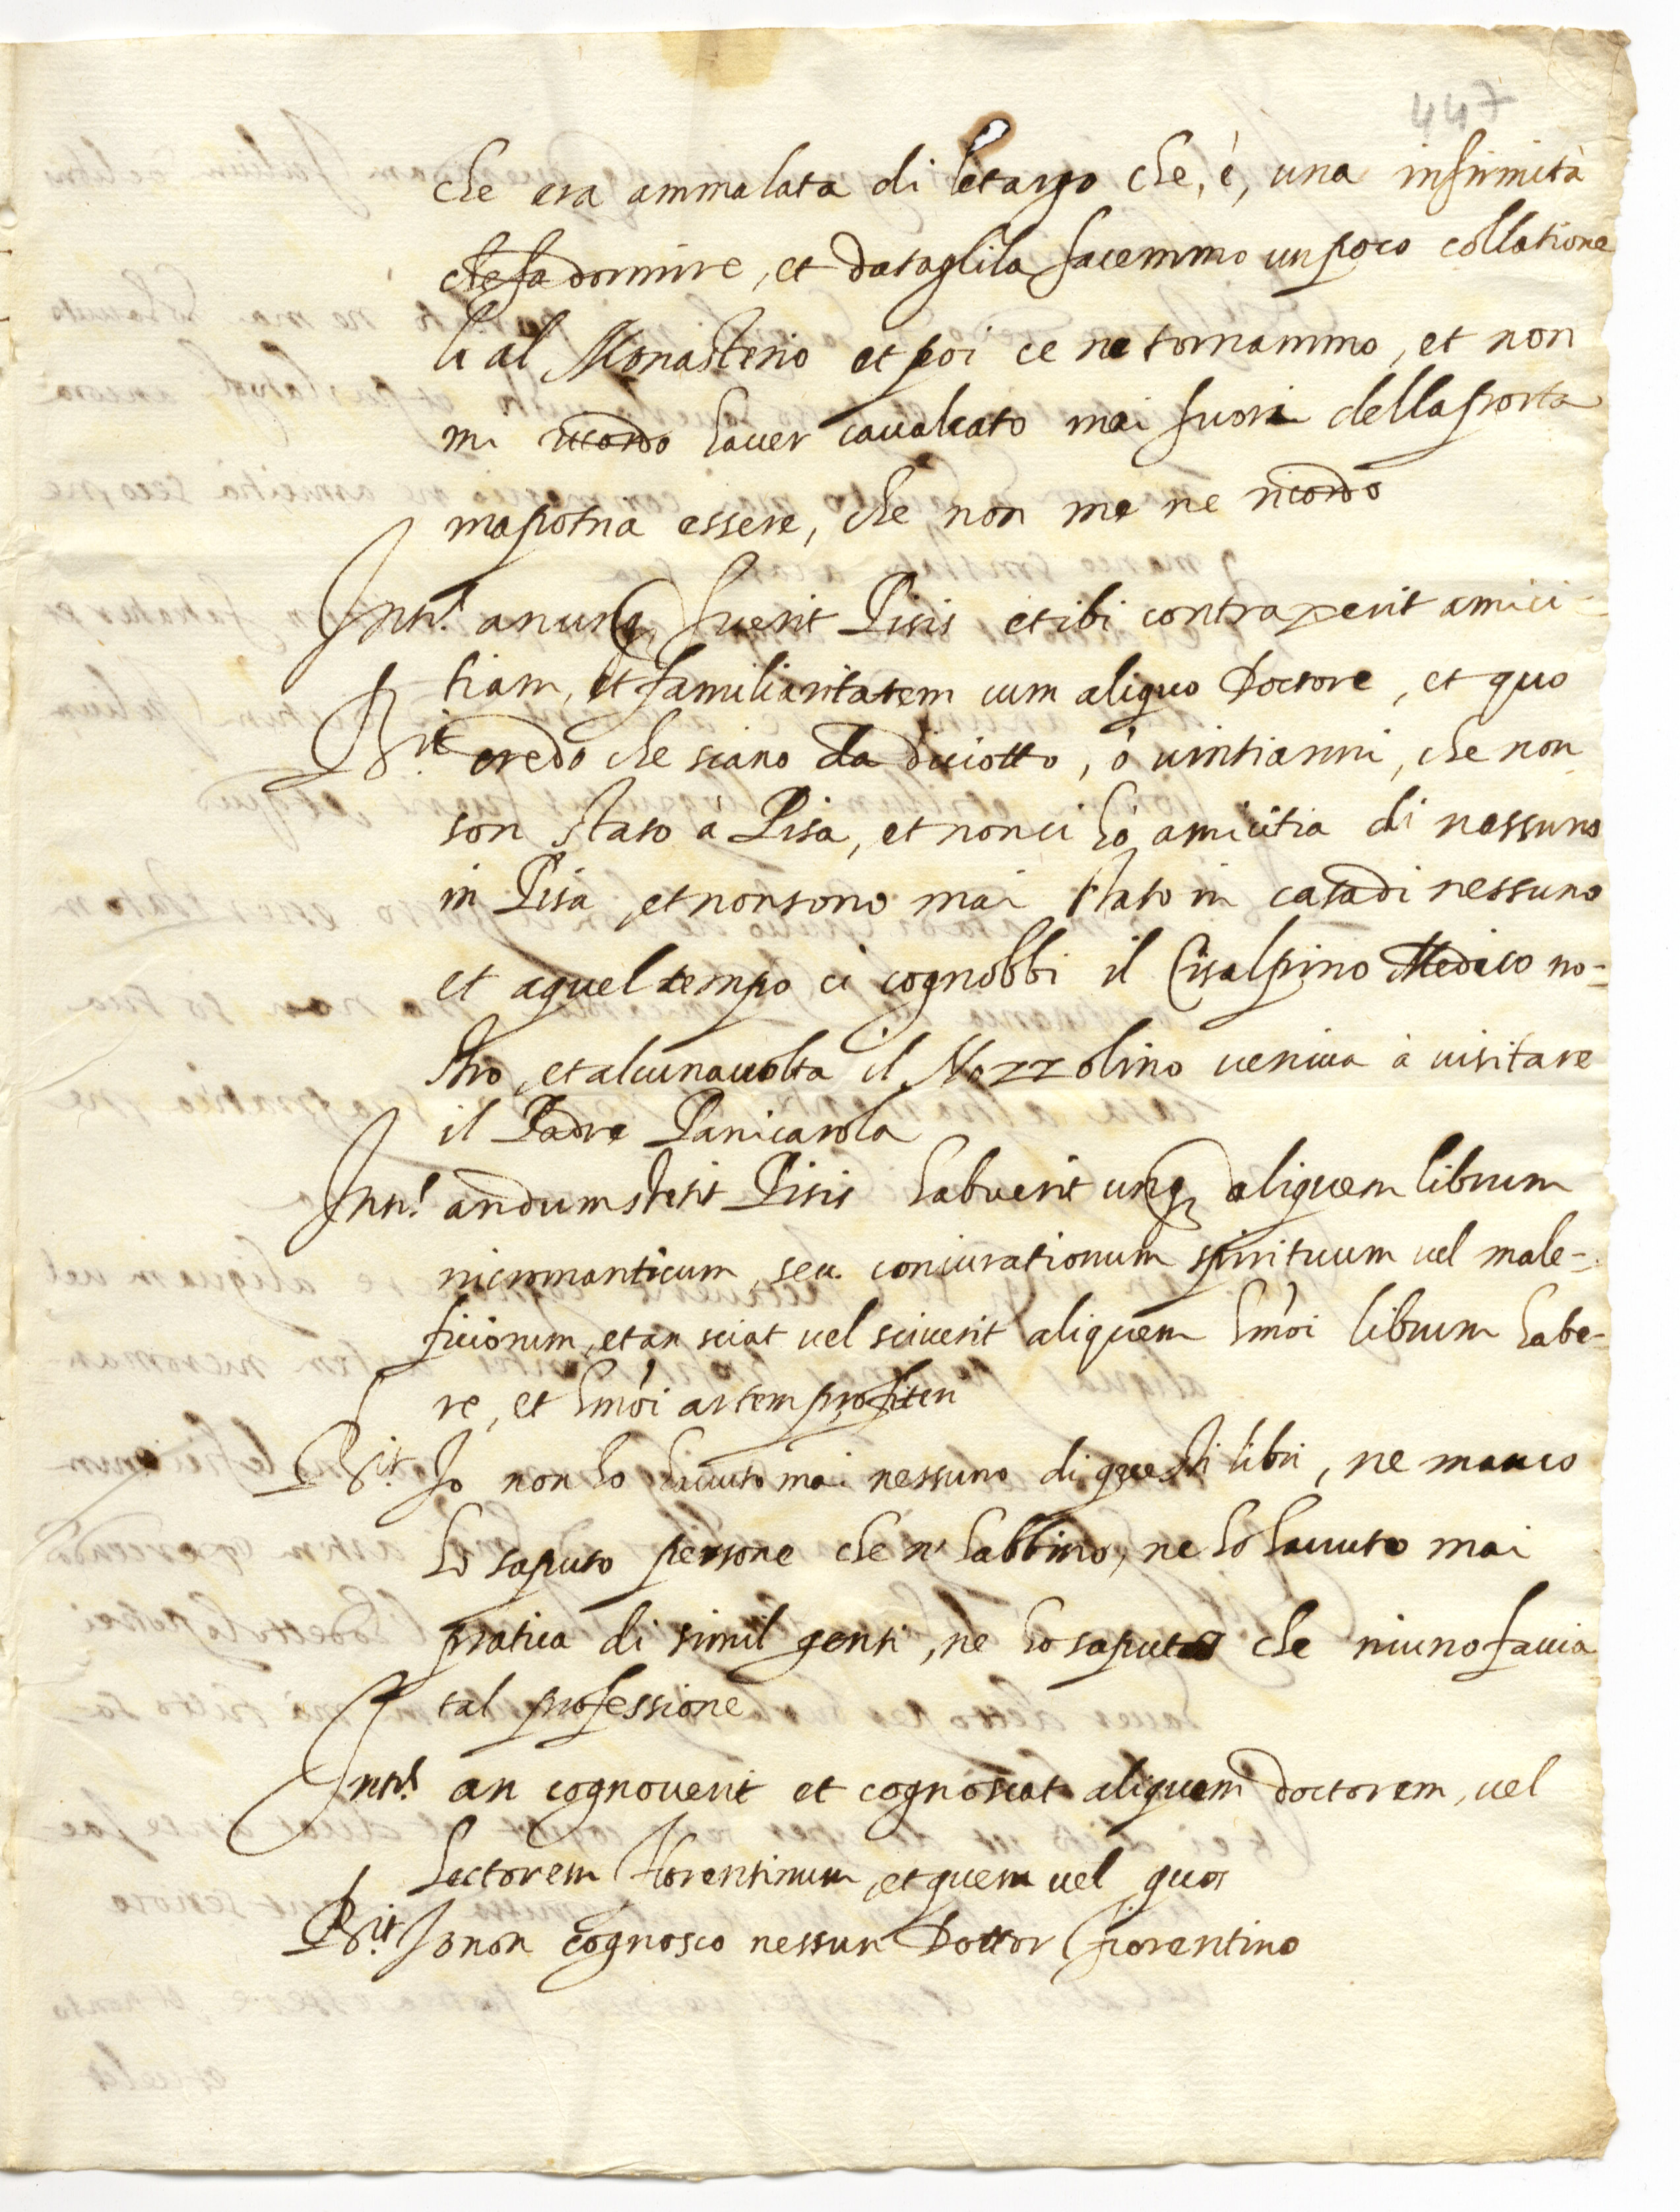 447
che era ammalata di letargo che, è, una infirmità
che fa dormire, et dataglila facemmo un poco collatione
li al Monasterio et poi ce ne tornammo, et non
mi ricordo haver cavalcato mai fuori della porta
ma potria essere, che non me ne ricordo
Intr. an unq fuerit Pisis et ibi contraxerit amici-
tiam, et familiaritatem cum aliquo Doctore, et quo
Rit credo che siano da diciotto, ò vinti anni, che non
son stato à Pisa, et non ci hò amicitia di nessuno
in Pisa, et non sono mai stato in casa di nessuno
et a quel tempo ci cognobbi il Cisalpino Medico no-
stro, et alcuna volta il Mozzolino veniva à visitare
il Padre Panicarola
Intr. an dum stetit Pisis habuerit unq aliquem librum
nicromanticum, seu coniurationum spirituum vel male-
ficiorum, et an sciat vel sciverit aliquem hmoi librum habe-
re, et hmoi artem profiteri
Rit Io non ho havuto mai nessuno di questi libri, ne manco
hò saputo persone che n' habbino, ne hò havuto mai
pratica di simil genti, ne ho saputo che niuno faccia
tal professione
Intr. an cognoverit et cognoscat aliquem doctorem, vel
Lectorem Florentinum, et quem vel quos
Rit Io non cognosco nessun Dottor Fiorentino